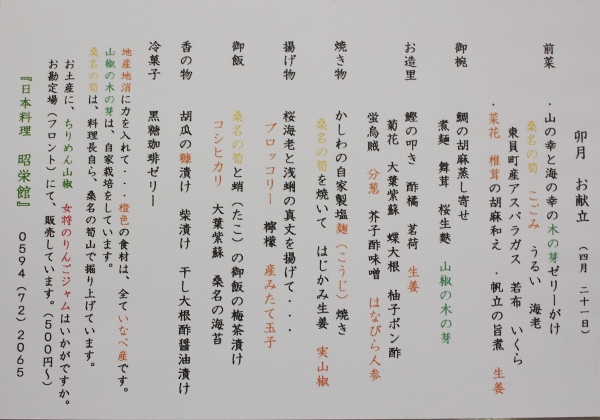 卯月 お献立 (四月 二十一日)
前菜 ・山の幸と海の幸の木の芽ゼリーがけ
桑名の筍 こごみ うるい 海老
東員町産アスパラガス 若布 いくら
・菜花 椎茸の胡麻和え ・帆立の旨煮 生姜
御椀 鯛の胡麻蒸し寄せ
煮麺 舞茸 桜生麩 山椒の木の芽
お造里 鰹の叩き 酢橘 茗荷 生姜
菊花 大葉紫蘇 蝶大根 柚子ポン酢
蛍烏賊 分葱 芥子酢味噌 はなびら人参
焼き物 かしわの自家製塩麹(こうじ)焼き
桑名の筍を焼いて はじかみ生姜 実山椒
揚げ物 桜海老と浅蜊の真丈を揚げて・・・
ブロッコリー 檸檬 産みたて玉子
御飯 桑名の筍と蛸(たこ)の御飯の梅茶漬け
コシヒカリ 大葉紫蘇 桑名の海苔
香の物 胡瓜の糠漬け 柴漬け 干し大根酢醤油漬け
冷菓子 黒糖珈琲ゼリー
地産地消に力を入れて・・・橙色の食材は、全ていなべ産です。
山椒の木の芽は、自家栽培をしています。
桑名の筍は、料理長自ら、桑名の筍山で掘り上げています。
お土産に、ちりめん山椒 女将のりんごジャムはいかがですか。
お勘定場(フロント)にて、販売しています。(500円~)
『日本料理 昭栄館』 0594(72)2065